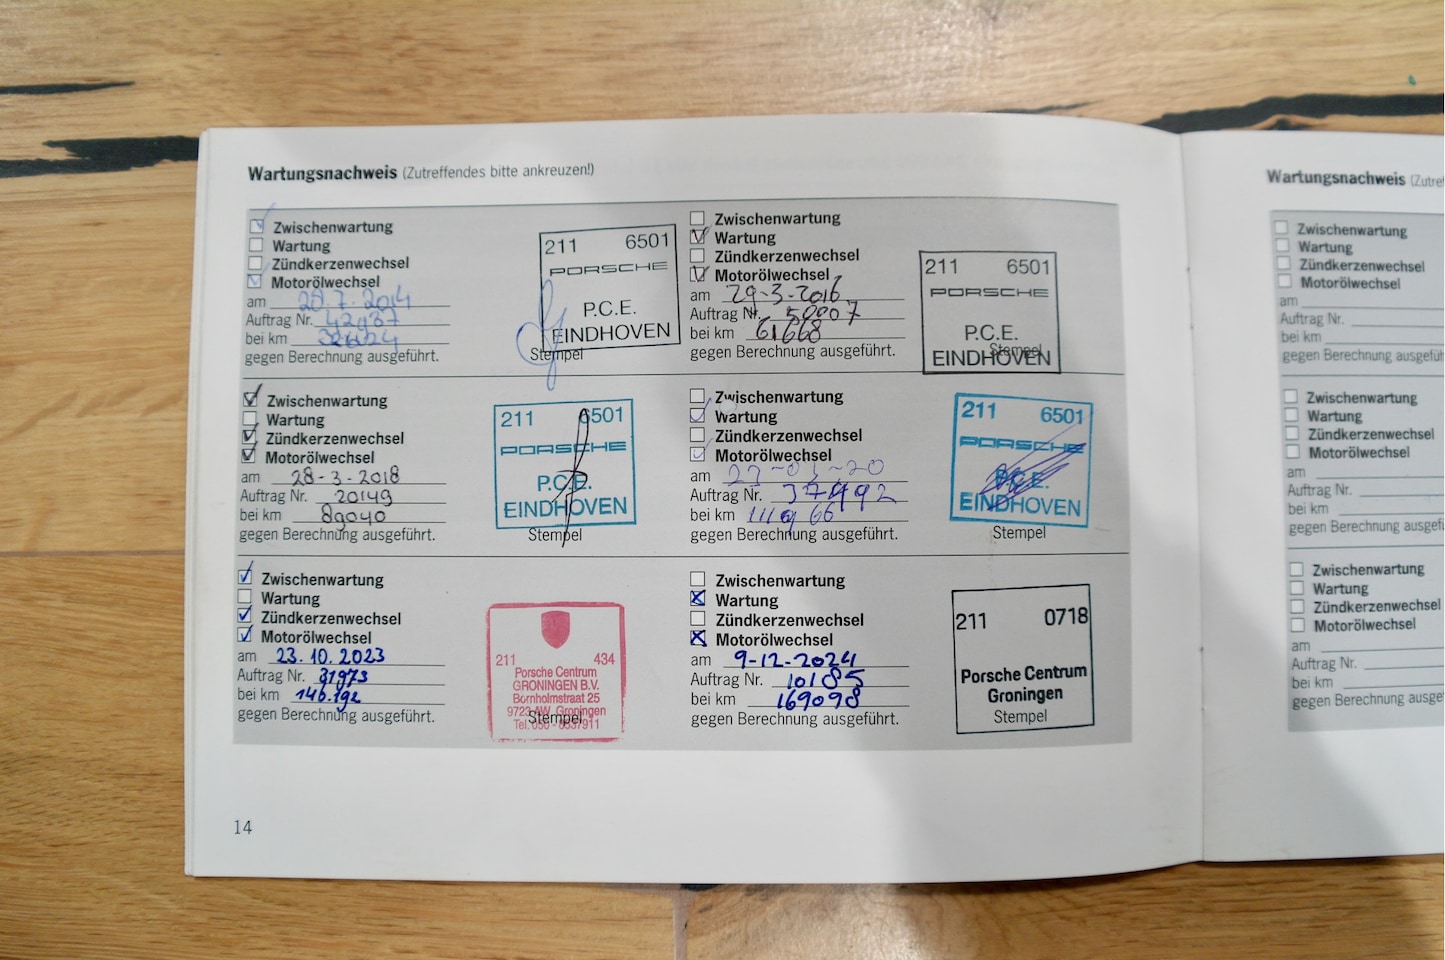 Wartungsnachweis (Zutreffendes bitte ankreuzen!)
Zwischenwartung
Wartung
Zündkerzenwechsel
Motorölwechsel
am 28.7.2014
Auftrag Nr.
bei km
gegen Berechnung ausgeführt.
211 6501
PORSCHE
P.C.E.
EINDHOVEN
Stempel
Zwischenwartung
Wartung
Zündkerzenwechsel
Motorölwechsel
am 29-3-2016
Auftrag Nr. 50007
bei km 61668
gegen Berechnung ausgeführt.
211 6501
PORSCHE
P.C.E.
EINDHOVEN
Stempel
Zwischenwartung
Wartung
Zündkerzenwechsel
Motorölwechsel
am 28-3-2018
Auftrag Nr. 20149
bei km 89040
gegen Berechnung ausgeführt.
211 6501
PORSCHE
P.C.E.
EINDHOVEN
Stempel
Zwischenwartung
Wartung
Zündkerzenwechsel
Motorölwechsel
am
Auftrag Nr. 37492
bei km 111966
gegen Berechnung ausgeführt.
211 6501
PORSCHE
P.C.E.
EINDHOVEN
Stempel
Zwischenwartung
Wartung
Zündkerzenwechsel
Motorölwechsel
am 23.10.2023
Auftrag Nr. 31973
bei km 146.192
gegen Berechnung ausgeführt.
211 434
Porsche Centrum
GRONINGEN B.V.
Bornholmstraat 25
9723 AW Groningen
Tel. 050 -
Stempel
Zwischenwartung
Wartung
Zündkerzenwechsel
Motorölwechsel
am 9-12-2024
Auftrag Nr. 10185
bei km 169098
gegen Berechnung ausgeführt.
211 0718
Porsche Centrum
Groningen
Stempel
14
Wartungsnachweis
Zwischenwartung
Wartung
Zündkerzenwechsel
Motorölwechsel
am
Auftrag Nr.
bei km
gegen Berechnung
Zwischenwartung
Wartung
Zündkerzenwechsel
Motorölwechsel
am
Auftrag Nr.
bei km
gegen Berechnung
Zwischenwartung
Wartung
Zündkerzenwechsel
Motorölwechsel
am
Auftrag Nr.
bei km
gegen Berechnung